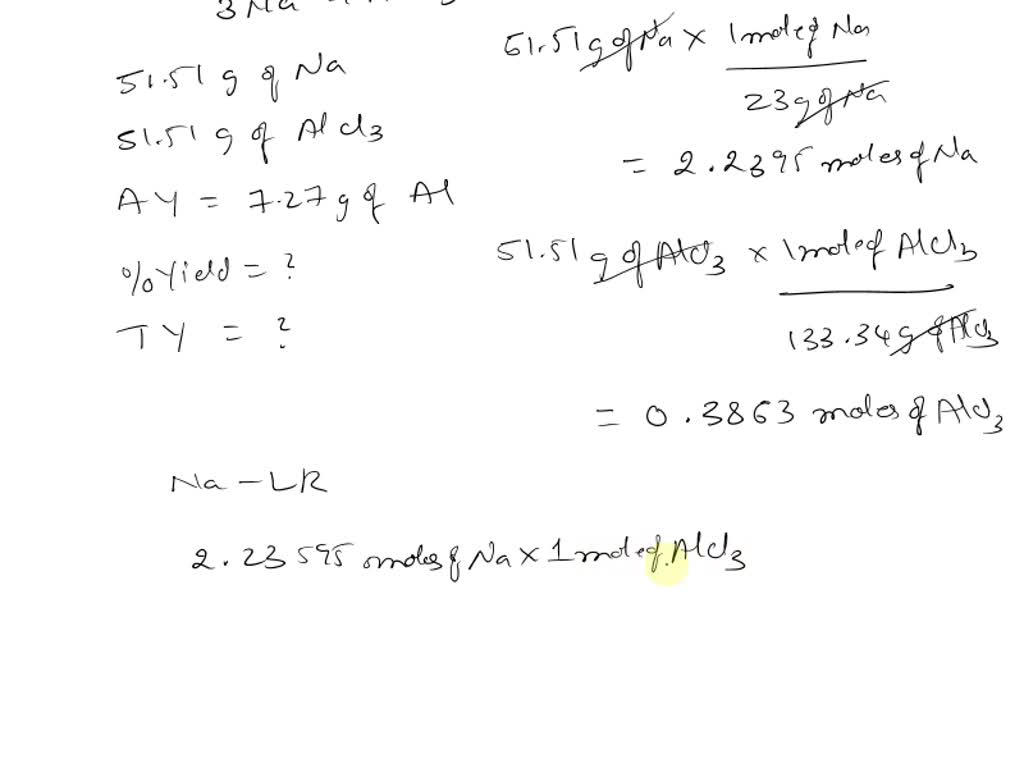 3 Na
51.51 g of Na
51.51 g of AlCl3
AY = 7.27 g of Al
% Yield = ?
TY = ?
51.51 g of Na × 1 mol of Na
23 g of Na
= 2.2395 moles of Na
51.51 g of AlCl3 × 1 mol of AlCl3
133.34 g of AlCl3
= 0.3863 moles of AlCl3
Na - LR
2.23595 moles of Na × 1 mol of AlCl3